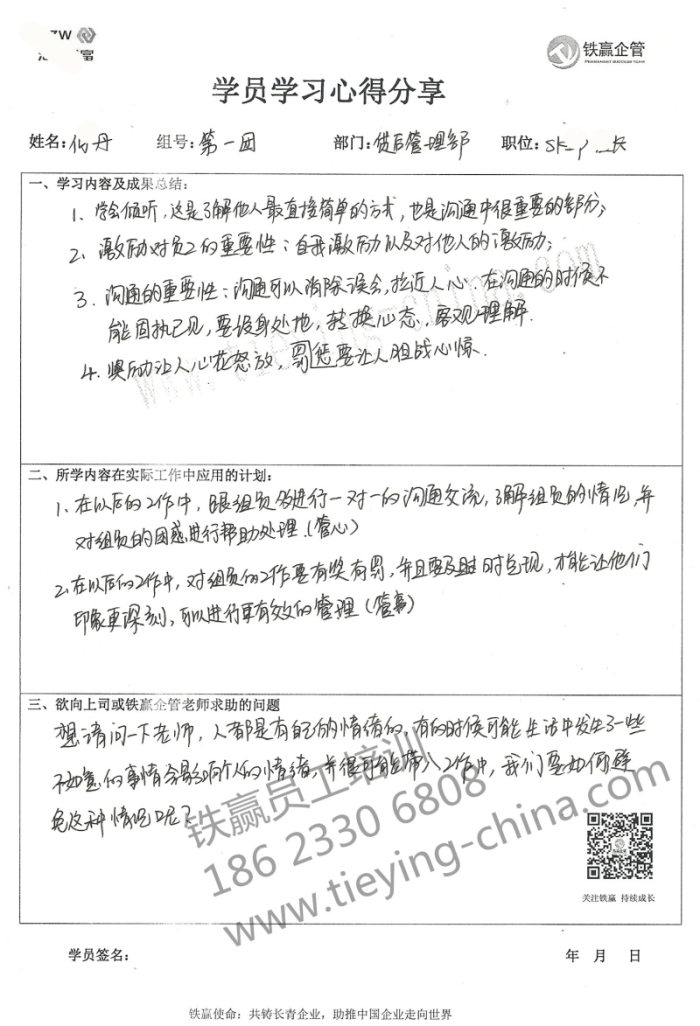 ZW
富
铁赢企管
PERMANENT SUCCESS TEAM
学员学习心得分享
姓名:伯丹 组号:第一团 部门:贷后管理部 职位: 长
一、学习内容及成果总结:
1、学会倾听,这是了解他人最直接简单的方式,也是沟通中很重要的部分;
2、激励对员工的重要性:自我激励以及对他人的激励;
3、沟通的重要性:沟通可以消除误会,拉近人心.在沟通的时候不
能固执己见,要设身处地,转换心态,客观理解.
4、奖励让人心花怒放,罚惩要让人胆战心惊.
www.tieying-china.com
二、所学内容在实际工作中应用的计划:
1、在以后的工作中,跟组员多进行一对一的沟通交流,了解组员的情况,并
对组员的困惑进行帮助处理.(管心)
2、在以后的工作中,对组员的工作要有奖有罚,并且要及时兑现,才能让他们
印象更深刻,可以进行更有效的管理(管事)
三、欲向上司或铁赢企管老师求助的问题
想请问一下老师,人都是有自己的情绪的,有的时候可能生活中发生了一些
不如意的事情会影响个人的情绪,并很可能带入工作中,我们要如何避
免这种情况呢?
铁赢员工培训
186 2330 6808
www.tieying-china.com
关注铁赢 持续成长
学员签名: 年 月 日
铁赢使命:共铸长青企业,助推中国企业走向世界